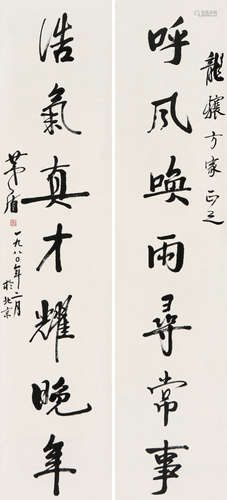 龙骧方家正之
呼风唤雨寻常事
浩气真才耀晚年
茅盾
一九八〇年二月
于北京